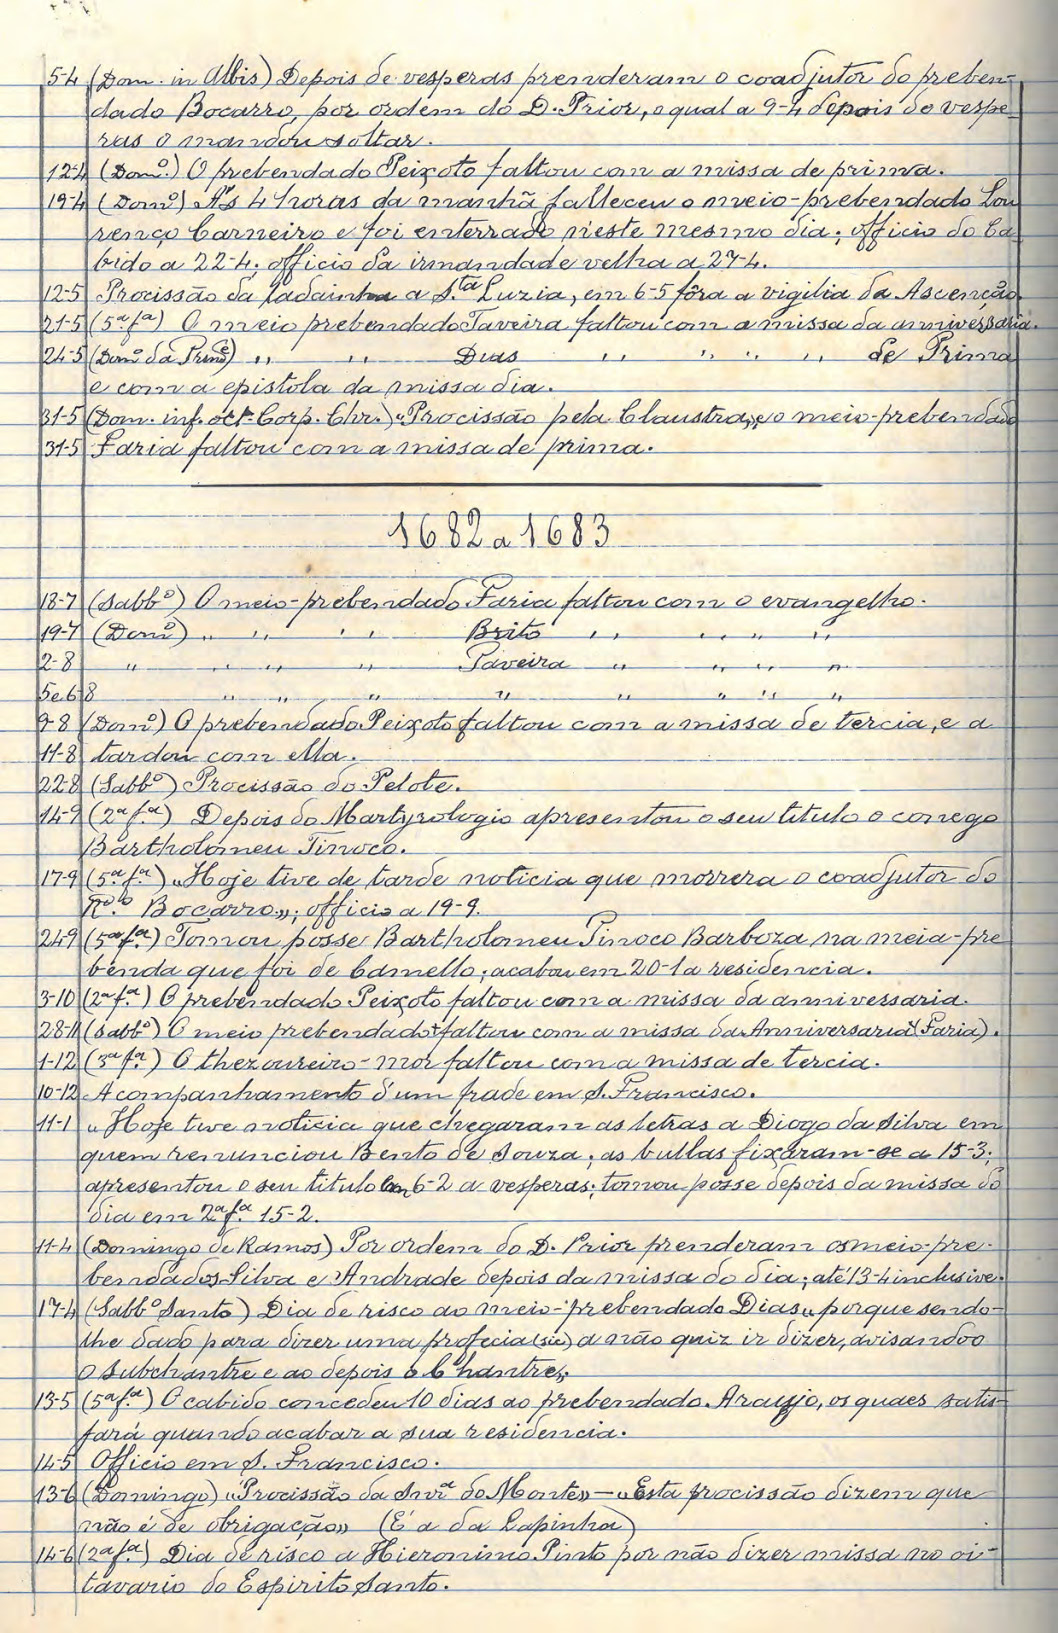 5-4 (Dom. in Albis) Depois de vesperas prenderam o coadjutor do preben-
dado Bocarro, por ordem do D. Prior, o qual a 9-4 depois de vespe-
ras o mandou soltar.
12-4 (Domº.) O prebendado Peixoto faltou com a missa de prima.
19-4 (Domº) A's 4 horas da manhã falleceu o meio-prebendado Lou
renço Carneiro e foi enterrado n'este mesmo dia; officio do Ca-
bido a 22-4; officio da irmandade velha a 27-4.
12-5 Procissão da ladainha a S.ta Luzia, em 6-5 fôra a vigilia da Ascenção.
21-5 (5ª fª) O meio prebendado Taveira faltou com a missa da anniversaria.
24-5 (Domº da Trinde) ,, ,, Dias ,, ,, ,, ,, de Prima
e com a epistola da missa dia.
31-5 (Dom. inf. oct. Corp. Chr.) "Procissão pela Claustra," e o meio-prebendado
31-5 Faria faltou com a missa de prima.
1682 a 1683
18-7 (Sabbº) O meio-prebendado Faria faltou com o evangelho.
19-7 (Domº) ,, ,, ,, Brito ,, ,, ,, ,,
2-8 ,, ,, ,, ,, Taveira ,, ,, ,, ,,
5e6-8 ,, ,, ,, ,, ,, ,, ,, ,,
9-8 (Domº) O prebendado Peixoto faltou com a missa de tercia, e a
11-8 tardou com ella.
22-8 (Sabbº) Procissão do Pelote.
14-9 (2ª fª) Depois do Martyrologio apresentou o seu titulo o conego
Bartholomeu Tinoco.
17-9 (5ª fª.) "Hoje tive de tarde noticia que morrera o coadjutor do
R.do Bocarro"; officio a 19-9.
24-9 (5ª fª) Tomou posse Bartholomeu Tinoco Barboza na meia-pre
benda que foi de Camello; acabou em 20-1 a residencia.
3-10 (2ª fª.) O prebendado Peixoto faltou com a missa da anniversaria.
28-11 (Sabbº) O meio prebendado faltou com a missa da Anniversaria (Faria).
1-12 (3ª fª.) O thezoureiro-mor faltou com a missa de tercia.
10-12 Acompanhamento d'um frade em S. Francisco.
11-1 "Hoje tive noticia que chegaram as letras a Diogo da Silva em
quem renunciou Bento de Souza; as bullas fixaram-se a 15-3;
apresentou o seu titulo em 6-2 a vesperas; tomou posse depois da missa do
dia em 2ª fª 15-2.
11-4 (Domingo de Ramos) Por ordem do D. Prior prenderam os meio-pre-
bendados Silva e Andrade depois da missa do dia; até 13-4 inclusive.
17-4 (Sabbº Santo) Dia de risco ao meio-prebendado Dias "porque sendo-
lhe dado para dizer uma profecia (sic) a não quiz ir dizer, avisandoo
o subchantre e ao depois o Chantre."
13-5 (5ª fª) O cabido concedeu 10 dias ao prebendado Araujo, os quaes satis-
fará quando acabar a sua residencia.
14-5 Officio em S. Francisco.
13-6 (Domingo) "Procissão da Snrª do Monte" — "Esta procissão dizem que
não é de obrigação" (É a da Lapinha)
14-6 (2ª fª) Dia de risco a Hieronimo Pinto por não dizer missa no oi-
tavario do Espirito Santo.